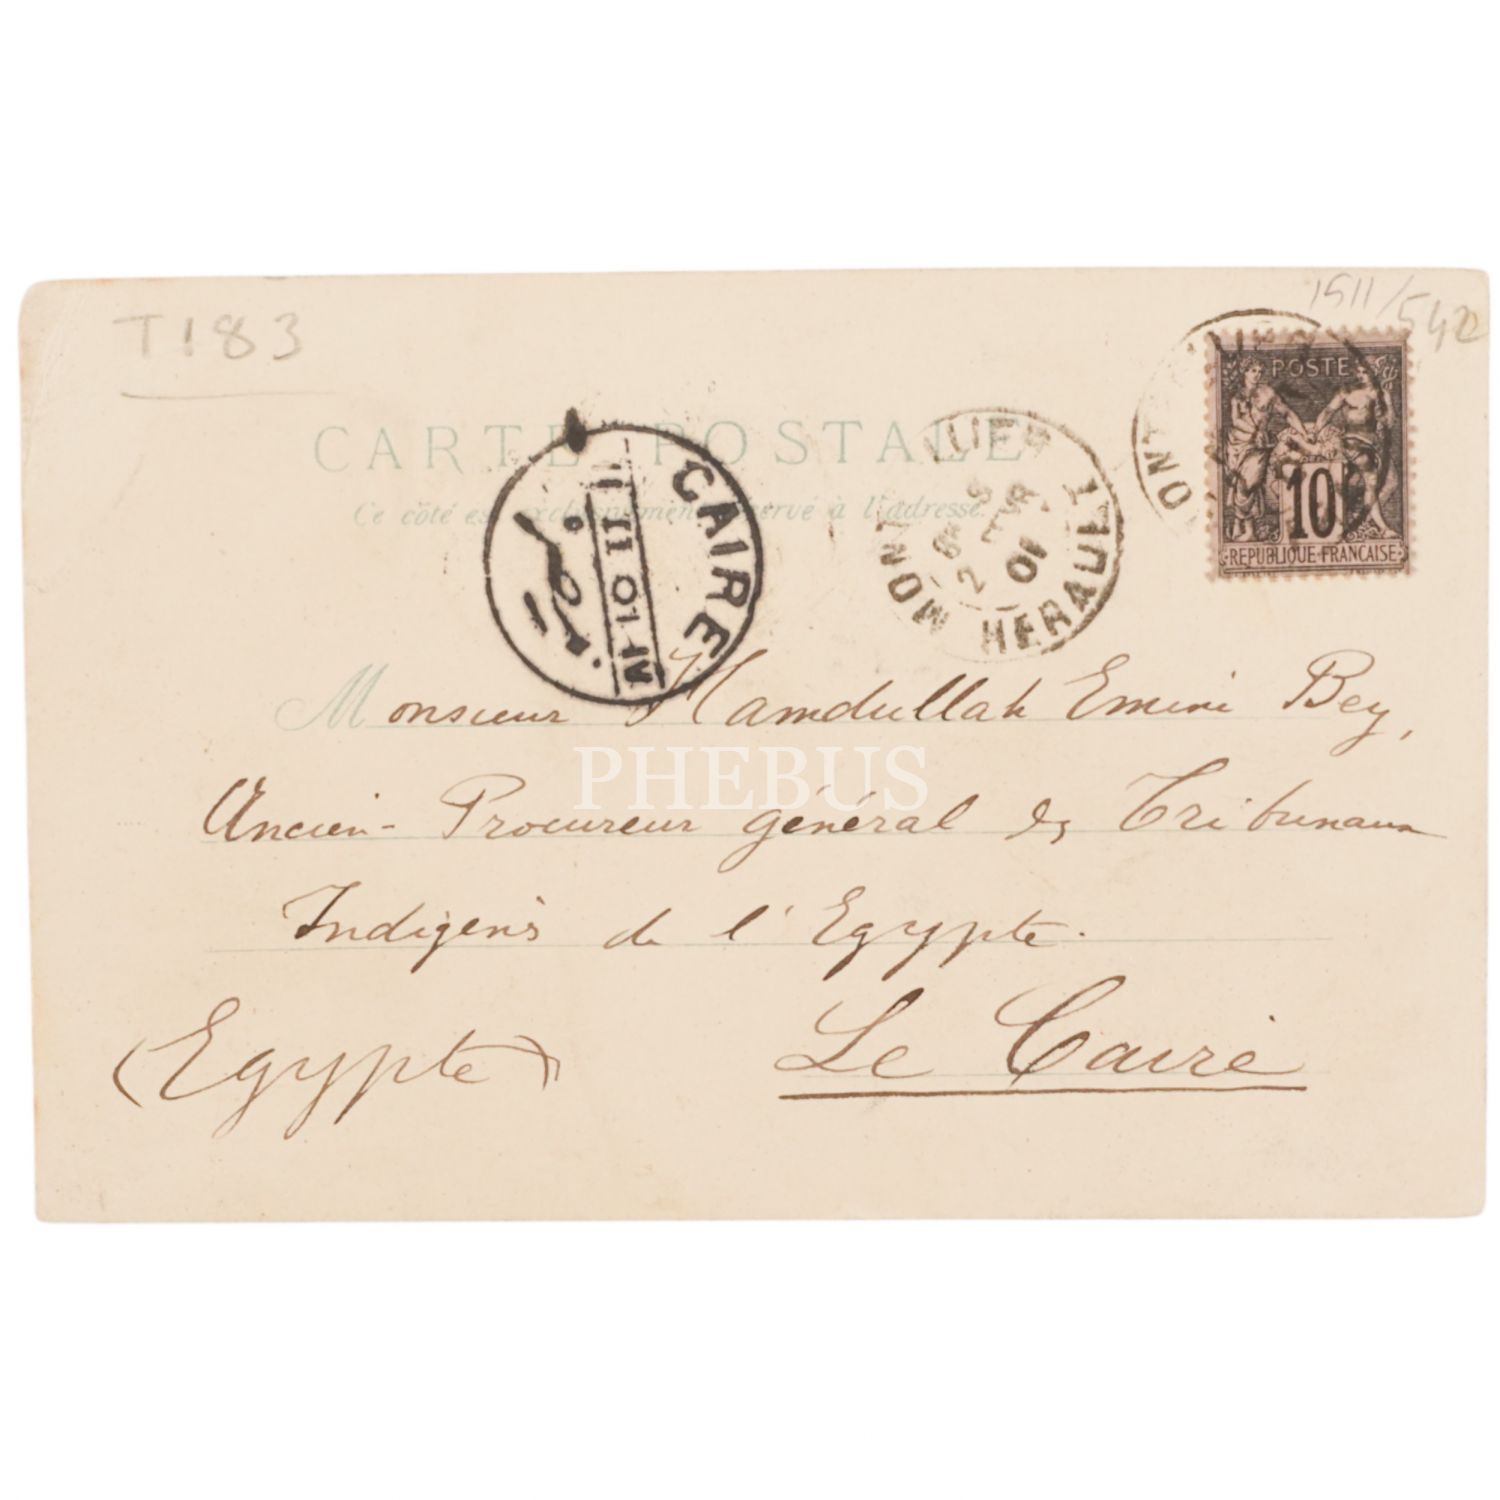 T183
1511/542
POSTE
10
REPUBLIQUE FRANCAISE
CARTE POSTALE
Ce côté est exclusivement réservé à l'adresse
CAIRE
II 01
HERAULT
01
Monsieur Hamdullah Emini Bey,
PHEBUS
Ancien-Procureur général des Tribunaux
Indigens de l'Egypte.
(Egypte) Le Caire